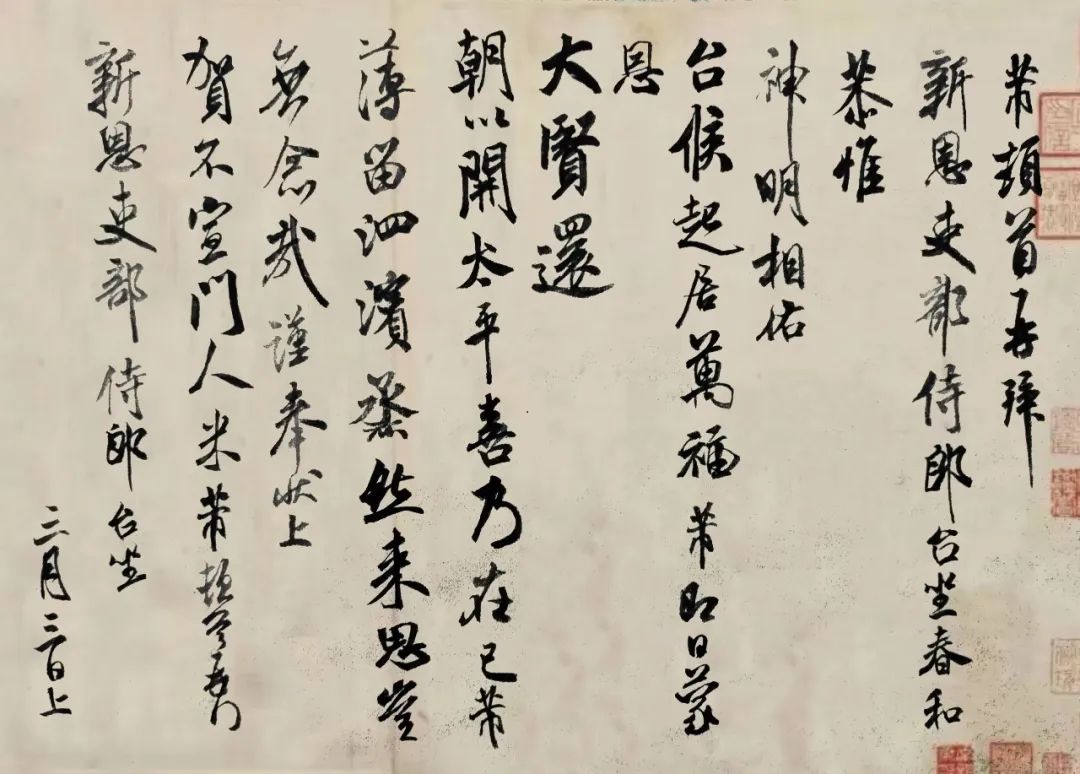 芾頓首再拜
新恩吏部侍郎台坐春和
恭惟
神明相佑
台候起居萬福芾即日蒙
恩
大賢還
朝以開太平喜乃在己芾
薄留泗濱烝然來思豈
無念哉謹奉狀上
賀不宣門人米芾頓首再拜
新恩吏部侍郎台坐
三月三日上